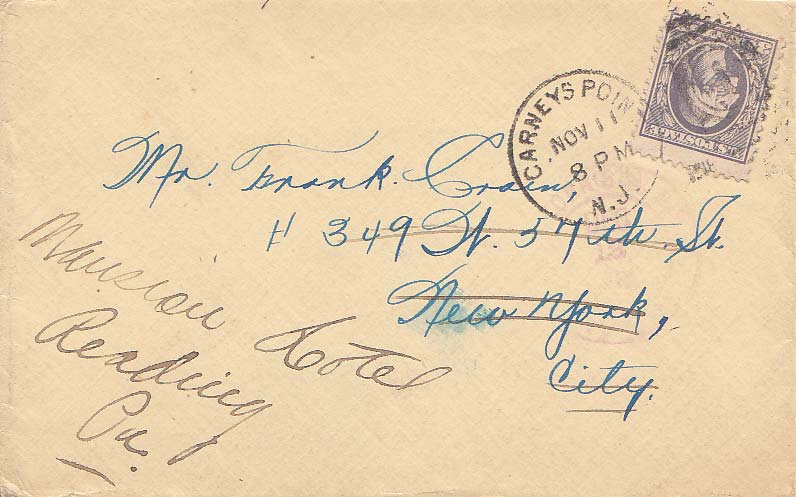 CARNEYS POIN
NOV 11
8 PM
N.J.
Mr. Frank. Crain,
# 349 W. 57th. St.
New York,
City.
Mansion Hotel
Reading
Pa.